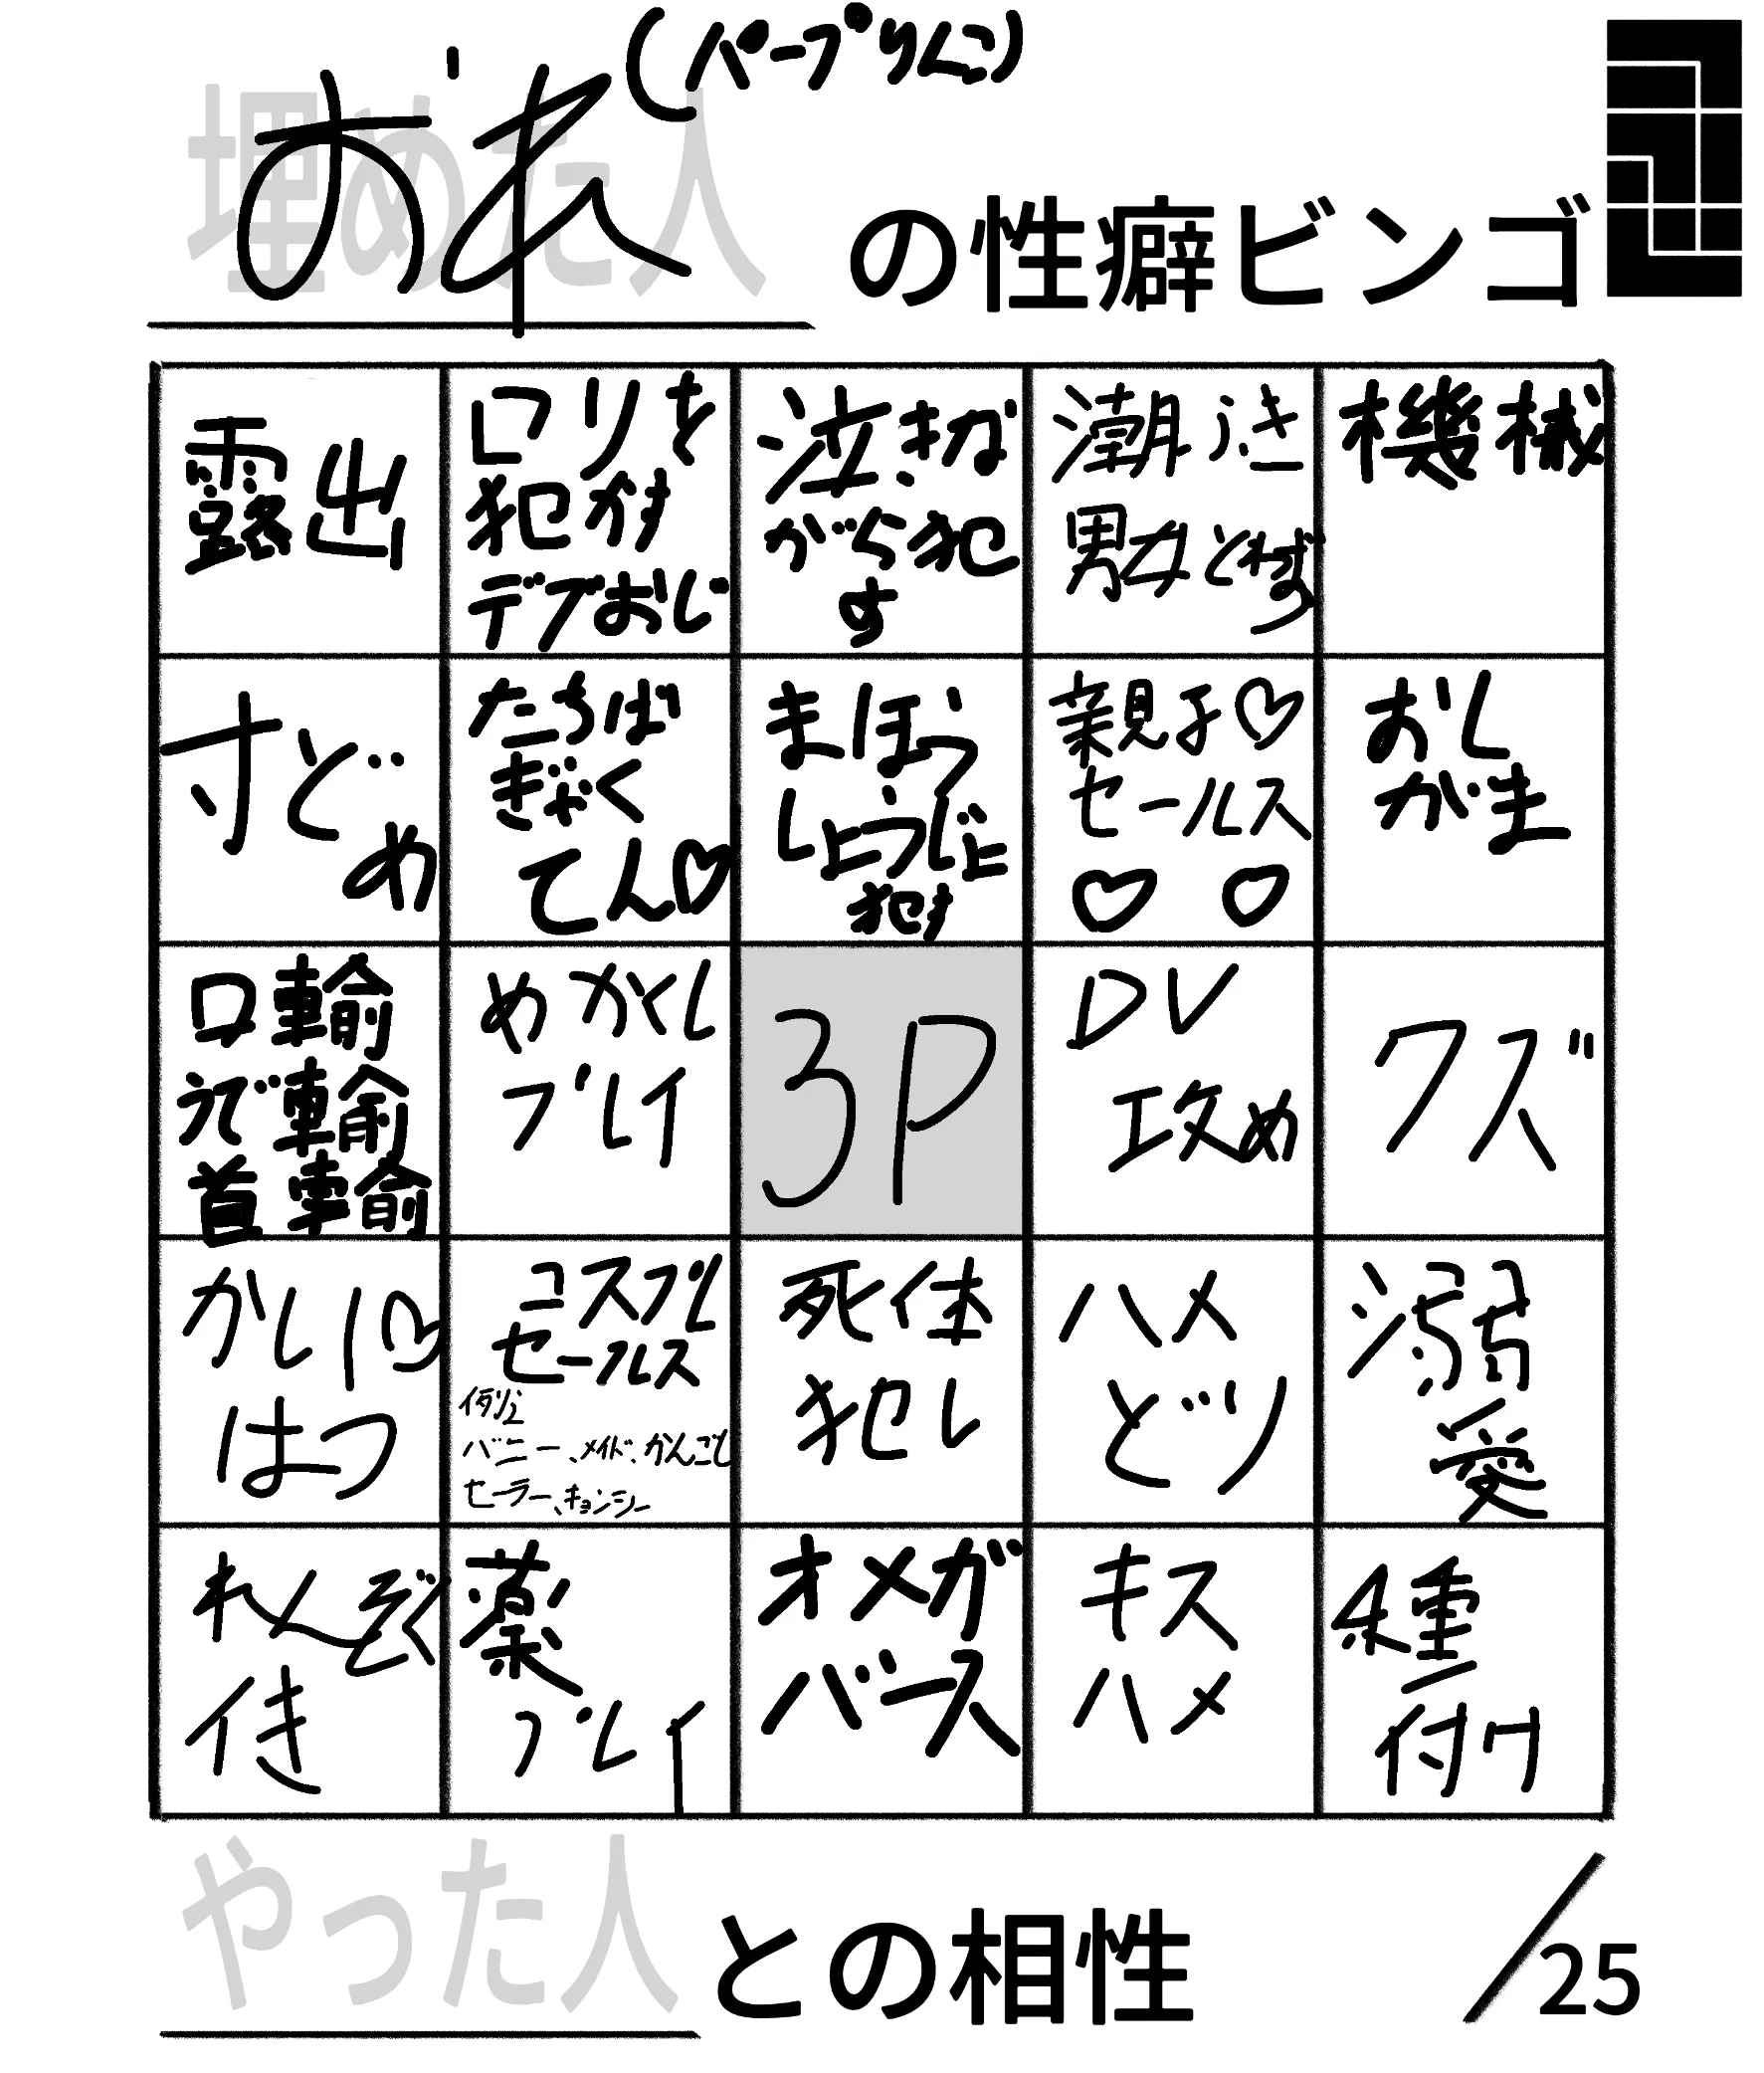 おれ(パープりんこ)
埋めた人
の性癖ビンゴ
露出
ロリを
犯かす
デブおじ
泣きな
がら犯
す
潮ふき
男女とわず
機械
寸どめ
たちば
ぎゃく
てん♡
まほう
しょうじょ
犯す
親子♡
セールス
♡ ♡
おし
がま
口輪
うで輪
首輪
めかくし
プレイ
3P
DV
攻め
クズ
はつ
コスプレ
セールス
例え
バニー、メイド、かんごし
セーラー、キョンシー
死体
犯し
ハメ
どり
溺
愛
れんぞく
薬
プレイ
オメガ
バース
キス
ハメ
種
付け
やった人
との相性
/25